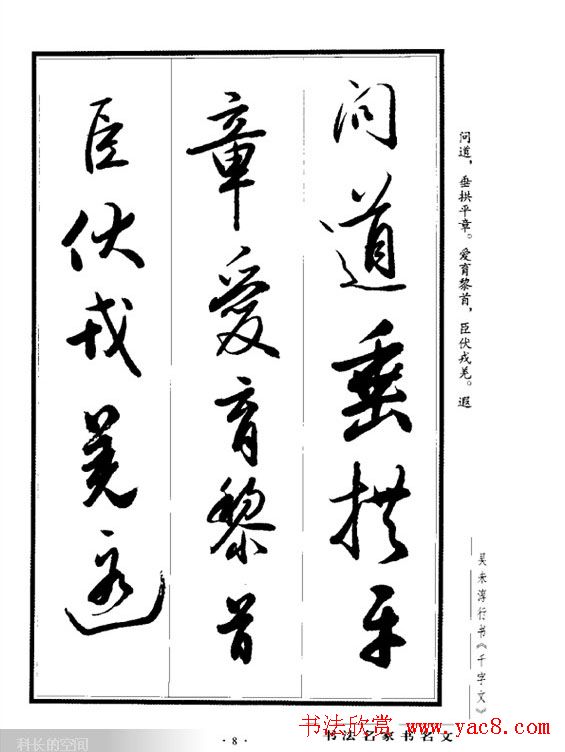 问道垂拱平
章爱育黎首
臣伏戎羌遐
问道，垂拱平章。爱育黎首，臣伏戎羌。遐
吴未淳行书《千字文》
·8·
书法名家书名文
书法欣赏 www.yac8.com
科长的空间